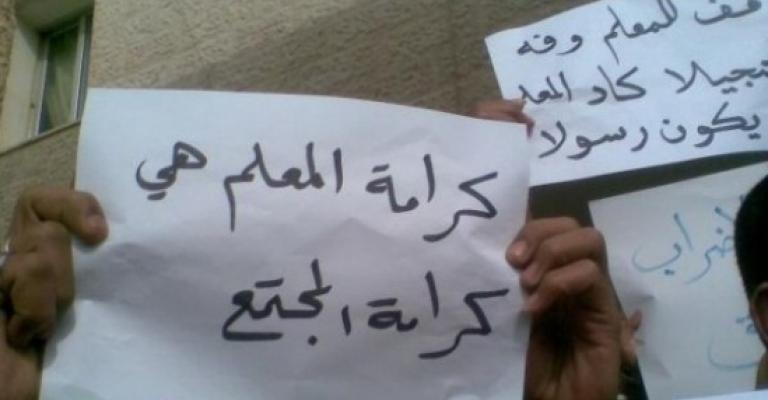 كرامة المعلم هي
كرامة المجتمع
قف للمعلم وفه
كاد المعلم
يكون رسولا